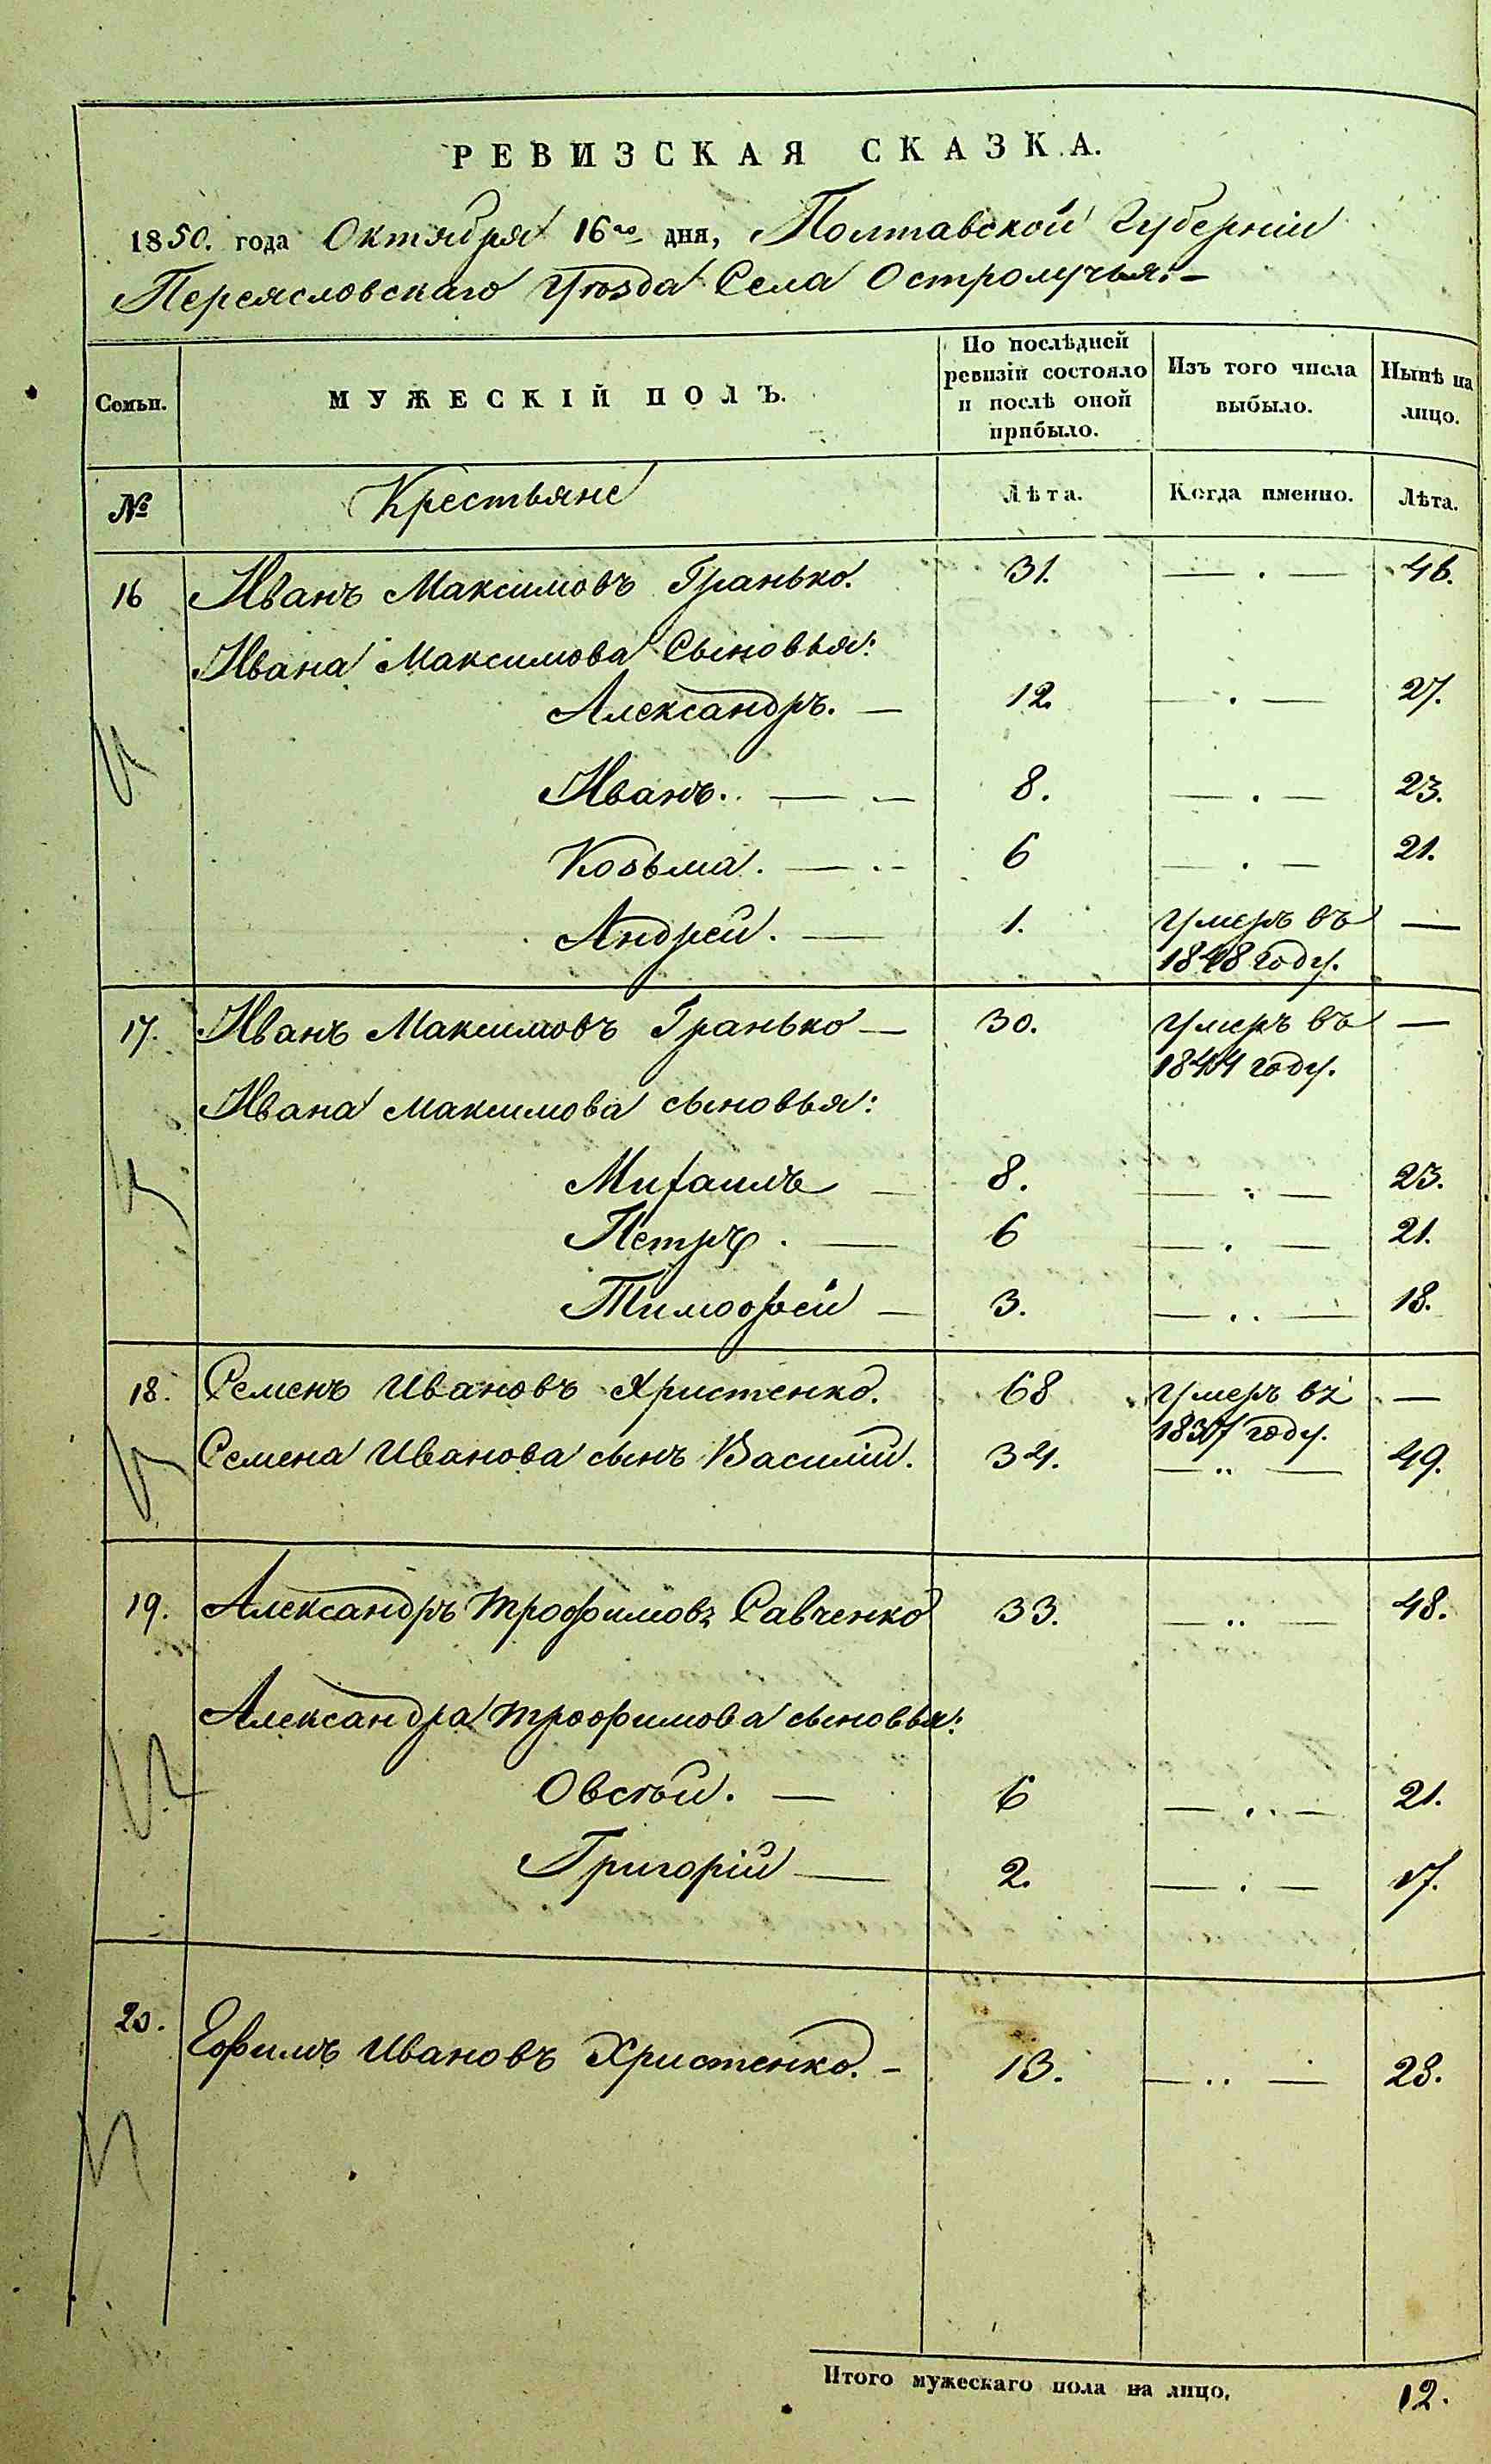 РЕВИЗСКАЯ СКАЗКА.
1850. года Октября 16го дня, Полтавской Губерніи
Переясловскаго Уѣзда Села Остролучья:-
Семьи.
МУЖЕСКІЙ ПОЛЪ.
По послѣдней
ревизіи состояло
и послѣ оной
прибыло.
Изъ того числа
выбыло.
Нынѣ на
лицо.
№
Крестьяне
Лѣта.
Когда именно.
Лѣта.
16 Иванъ Максимовъ Гранько. 31. — . — 46.
Ивана Максимова Сыновья:
Александръ. — 12. — . — 27.
Иванъ. — — 8. — . — 23.
Козьма. — 6 — . — 21.
Андрей. — 1. Умеръ въ —
1848 году.
17. Иванъ Максимовъ Гранько — 30. Умеръ въ —
1844 году.
Ивана Максимова сыновья:
Михаилъ — 8. — . — 23.
Петръ. — 6 — . — 21.
Тимофей — 3. — .. — 18.
18. Семенъ Ивановъ Христенко. 68 Умеръ въ —
1837 году.
Семена Иванова сынъ Василій. 34. — .. — 49.
19. Александръ Трофимовъ Савченко 33. — .. — 48.
Александра Трофимова сыновья:
Овсѣй. — 6 — .. — 21.
Григорій — 2. — . — 17.
20. Ефимъ Ивановъ Христенко. - 13. — .. — 28.
Итого мужескаго пола на лицо, 12.